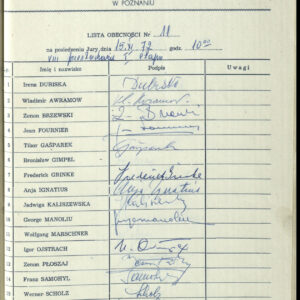 W POZNANIU
LISTA OBECNOŚCI Nr 11
na posiedzeniu Jury, 15.XI.72 godz. 10:00
VIII posiedzenie I etapu
Imię i nazwisko Podpis Uwagi
1 Irena DUBISKA Dubiska
2 Wladimir AWRAMOW
3 Zenon BRZEWSKI
4 Jean FOURNIER
5 Tibor GAŠPAREK Gašparek
6 Bronisław GIMPEL
7 Frederick GRINKE Frederick Grinke
8 Anja IGNATIUS Anja Ignatius
9 Jadwiga KALISZEWSKA
10 George MANOLIU
11 Wolfgang MARSCHNER
12 Igor OJSTRACH
13 Zenon PŁOSZAJ
14 Franz SAMOHYL Samohyl
Werner SCHOLZ Scholz